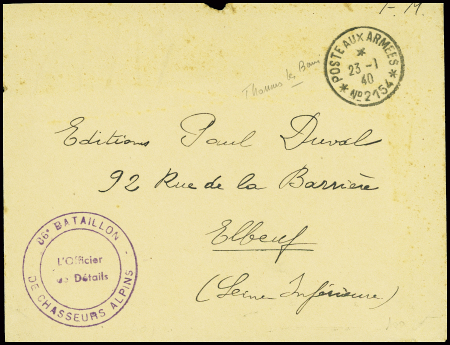 F. M.
POSTE AUX ARMÉES
23 -1
40
No 2154
Thonon les Bains
Editions Paul Duval
92 Rue de la Barrière
Elbeuf
(Seine Inférieure)
86e BATAILLON
L'Officier
de Détails
DE CHASSEURS ALPINS